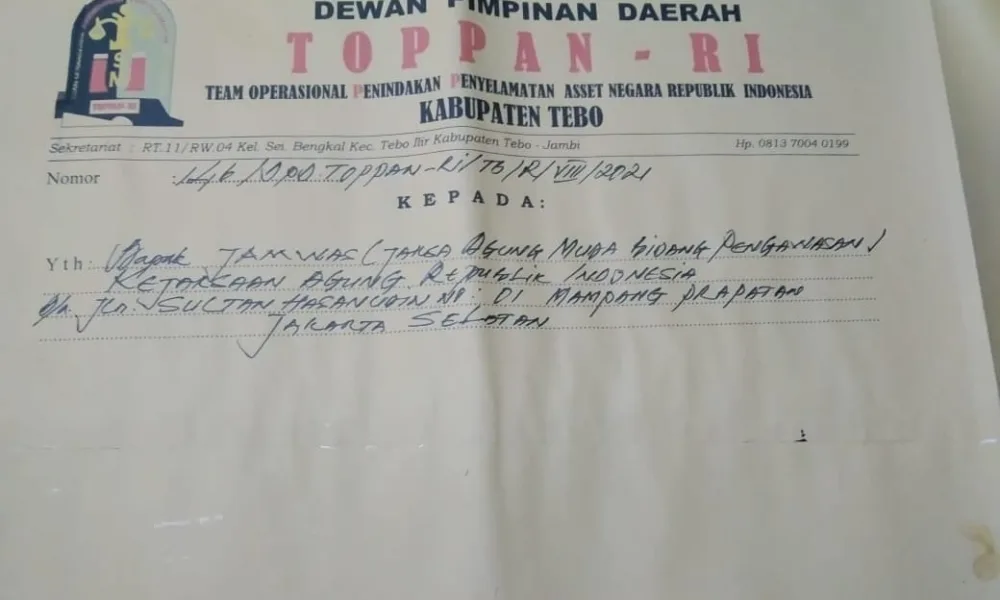 DEWAN PIMPINAN DAERAH
TOPPAN - RI
TEAM OPERASIONAL PENINDAKAN PENYELAMATAN ASSET NEGARA REPUBLIK INDONESIA
KABUPATEN TEBO
Sekretariat : RT.11/RW.04 Kel. Sei. Bengkal Kec. Tebo Ilir Kabupaten Tebo - Jambi Hp. 0813 7004 0199
Nomor : /DPD.TOPPAN-RI/TB/R/VIII/2021
KEPADA:
Yth: Bapak JAMWAS (JAKSA AGUNG MUDA BIDANG PENGAWASAN)
KEJAKSAAN AGUNG REPUBLIK INDONESIA
Jln. SULTAN HASANUDIN No: DI MAMPANG PRAPATAN
JAKARTA SELATAN